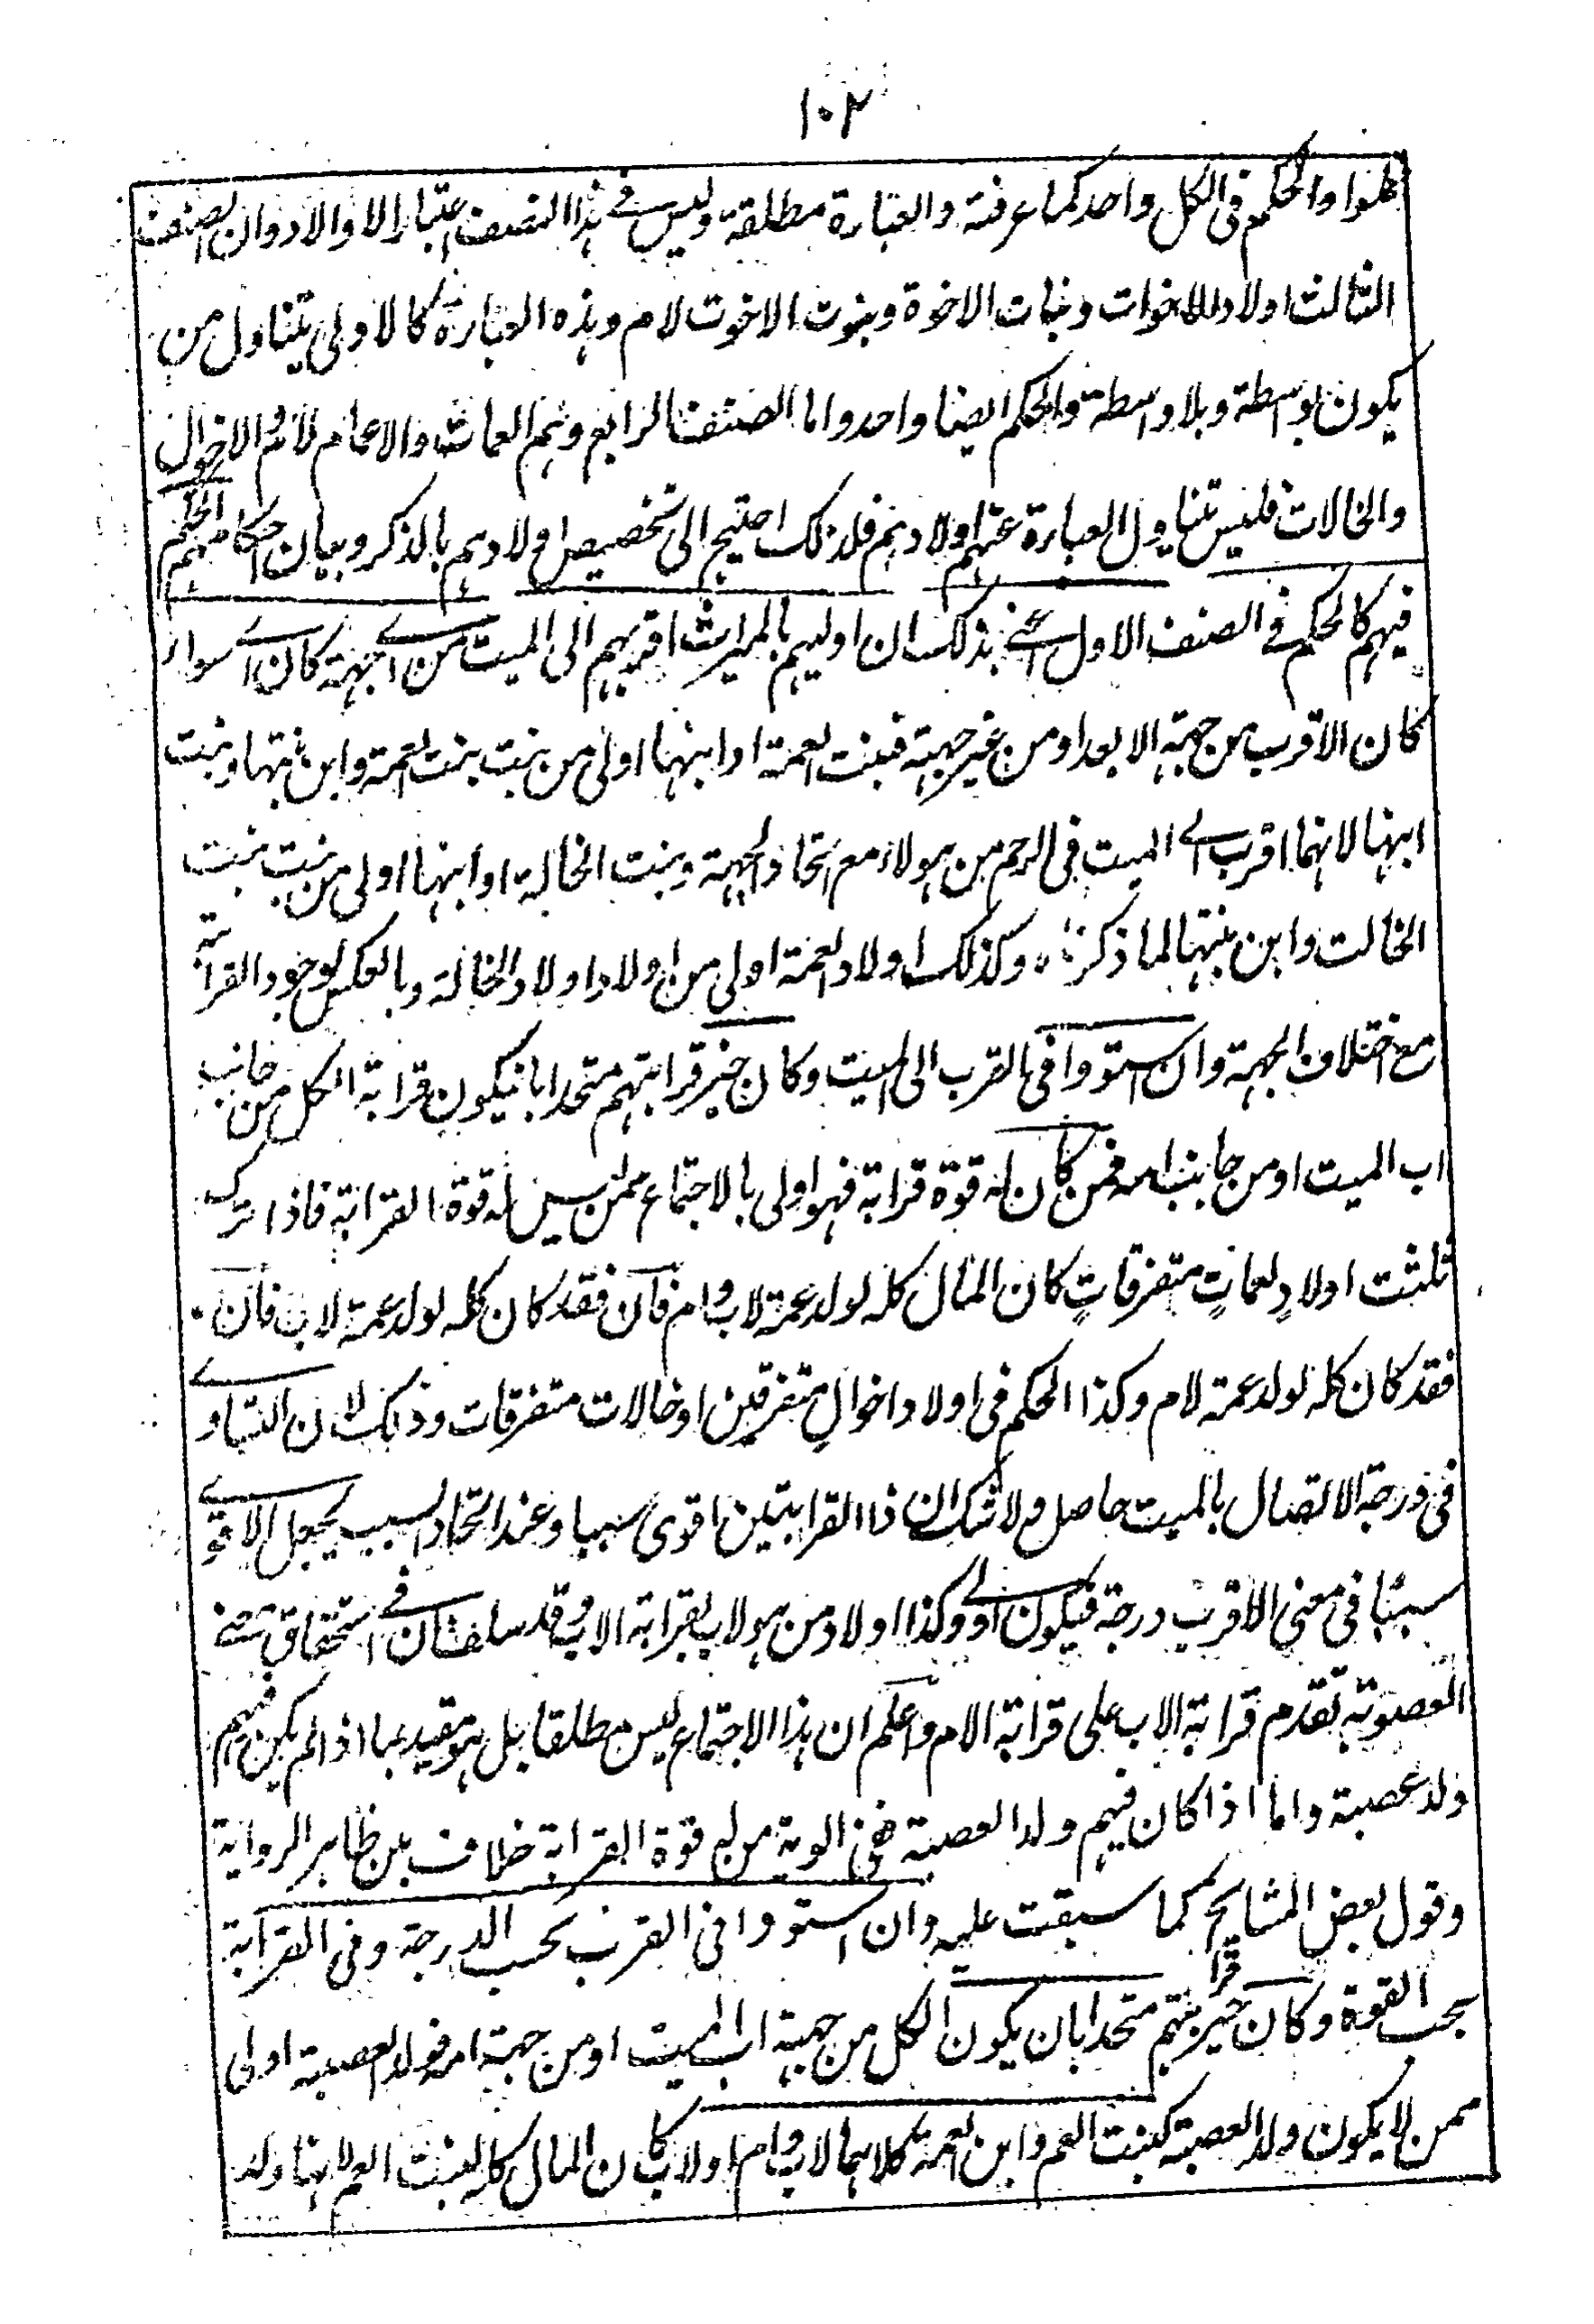 ١٠٢
علوا والحكم فى الكل واحد كما عرفته والعبارة مطلقة وليس فے هذا الصنف اعتبار الاولاد وان الصنف
الثالث اولاد الاخوات وبنات الاخوة وبنوت الاخوت لام وهذه العبارة كالاولى يتناول من
يكون بواسطة وبلا واسطة والحكم ايضا واحد واما الصنف الرابع وهم العمات والاعمام لام والاخوال
والخالات فليس تناول العبارة عنهم اولادهم فلذلك احتيج الى تخصيص اولادهم بالذكر وبيان احكامهم الحكم
فيهم كالحكم فے الصنف الاول اعنے بذلك ان اوليهم بالميراث اقربهم الى الميت من اے جهة كان اے سواء
كان الاقرب من جهة الابعد او من غير جهته فبنت العمة او ابنها اولى من بنت بنت العمة وابن بنتها وبنت
ابنها لانهما اقرب الے الميت فى الرحم من هولاء مع اتحاد الجهة وبنت الخالة او ابنها اولى من بنت بنت
الخالت وابن بنتها لما ذكرنا وكذلك اولاد العمة اولى من اولاد اولاد الخالة وبالعكس لوجود القرابة
مع اختلاف الجهة وان استووا فى القرب الى الميت وكان حيز قرابتهم متحدا بان يكون قرابة الكل من جانب
اب الميت او من جانب امه فمن كان له قوة قرابة فهو اولى بالاجتماع ممن ليس له قوة القرابة فاذا ترك
ثلثت اولادٍ لعماتٍ متفرقاتٍ كان المال كله لولد عمة لاب وام فان فقد كان كله لولد عمة لاب فان
فقد كان كله لولد عمة لام وكذا الحكم فى اولاد اخوالٍ متفرقين او خالات متفرقات وذلك لان التساوے
فى درجة الاتصال بالميت حاصل ولا شك ان ذا القرابتين اقوى سببا وعند اتحاد السبب يجعل الاقوے
سببًا فى معنى الاقرب درجة فيكون اولے وكذا اولاد من هو لاب بقرابة الاب وقد سلف ان فے استحقاق معنے
العصوبة تقدم قرابة الاب على قرابة الام واعلم ان هذا الاجتماع ليس مطلقا بل هو مقيد بما اذا لم يكن فيهم
ولد عصبة واما اذا كان فيهم ولد العصبة ففى الوية من له قوة القرابة خلاف بين ظاهر الرواية
وقول بعض المشايخ كما سبقت عليه وان استووا فى القرب بحسب الدرجة وفى القرابة
بحسب القوة وكان حيز قرابتهم متحدا بان يكون الكل من جهة اب الميت او من جهة امه فولد العصبة اولى
ممن لا يكون ولد العصبة كبنت العم وابن العمة كلاهما لاب وام او لاب كان المال كله لبنت العم لانها ولد